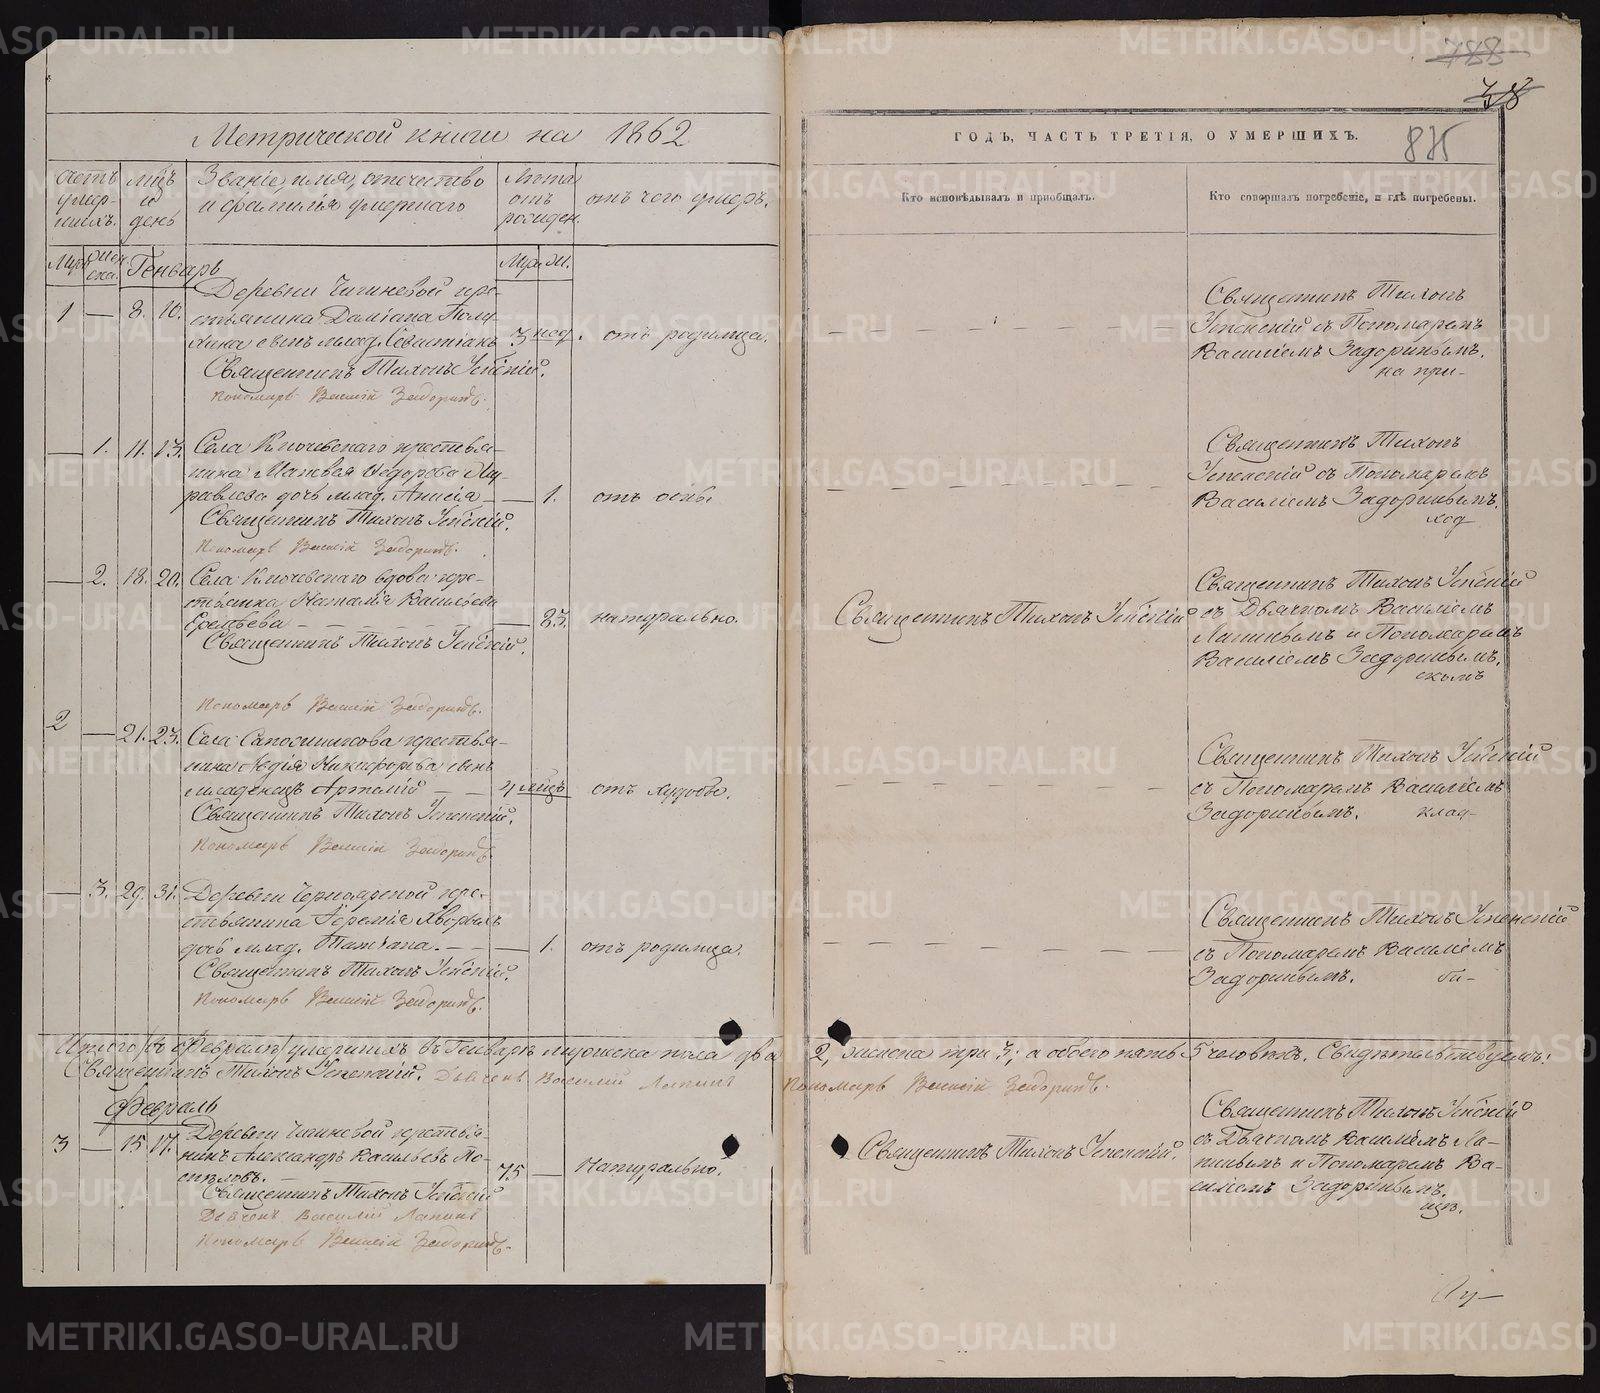 Метрической книги на 1862
счетъ умер-шихъ.
мцъ и день
Званіе, имя, отечество
и фамилія умершаго
Лѣта отъ рожден.
отъ чего умеръ.
Муж. Жен-ска.
Генварь
Муж. Ж.
1 — 8. 10.
Деревни Чигиневой кре-
стьянина Даміана
сынъ млад. Севастіанъ
3 нед. отъ родимца.
Священникъ Тихонъ Успенскій.
Пономарь Василій Задоринъ.
— 1. 11. 13.
Села Ключевскаго крестья-
нина Матвея Ѳедорова Жу-
равлева дочь млад. Анисія
— 1. отъ оспы
Священникъ Тихонъ Успенскій.
Пономарь Василій Задоринъ.
— 2. 18. 20.
Села Ключевскаго вдова кре-
стьянка Наталія Васильева
— 83. натурально.
Священникъ Тихонъ Успенскій.
Пономарь Василій Задоринъ.
2 — 21. 23.
Села Сапожникова крестья-
нина Никифорова сынъ
младенецъ Артемій
4 мцъ отъ худобы.
Священникъ Тихонъ Успенскій.
Пономарь Василій Задоринъ.
— 3. 29. 31.
Деревни Черноярской кре-
стьянина Іереміи Хворыхъ
дочь млад. Татіана.
— 1. отъ родимца.
Священникъ Тихонъ Успенскій.
Пономарь Василій Задоринъ.
Итого умершихъ въ Генварѣ мужеска пола два
Священникъ Тихонъ Успенскій. Дьячекъ Василій Лапинъ
Февраль
3 — 15 17.
Деревни Чигиневой крестья-
нинъ Александръ Васильевъ По-
спѣловъ.
75 — Натурально.
Священникъ Тихонъ Успенскій
Дьячекъ Василій Лапинъ
Пономарь Василій Задоринъ.
788
38
815
ГОДЪ, ЧАСТЬ ТРЕТІЯ, О УМЕРШИХЪ.
Кто исповѣдывалъ и пріобщалъ.
Кто совершалъ погребеніе, и гдѣ погребены.
Священникъ Тихонъ
Успенскій съ Пономаремъ
Василіемъ Задоринымъ.
на при-
Священникъ Тихонъ
Успенскій съ Пономаремъ
Василіемъ Задоринымъ.
ход
Священникъ Тихонъ Успенскій
Священникъ Тихонъ Успенскій
съ Дьячкомъ Василіемъ
Лапинымъ и Пономаремъ
Василіемъ Задоринымъ.
скомъ
Священникъ Тихонъ Успенскій
съ Пономаремъ Василіемъ
Задоринымъ. клад-
Священникъ Тихонъ Успенскій
съ Пономаремъ Василіемъ
Задоринымъ. би-
2, женска три 3; а обоего пять 5 человѣкъ. Свидѣтельствуемъ:
Пономарь Василій Задоринъ.
Священникъ Тихонъ Успенскій.
Священникъ Тихонъ Успенскій
съ Дьячкомъ Василіемъ Ла-
пинымъ и Пономаремъ Ва-
силіемъ Задоринымъ.
щѣ.
METRIKI.GASO-URAL.RU